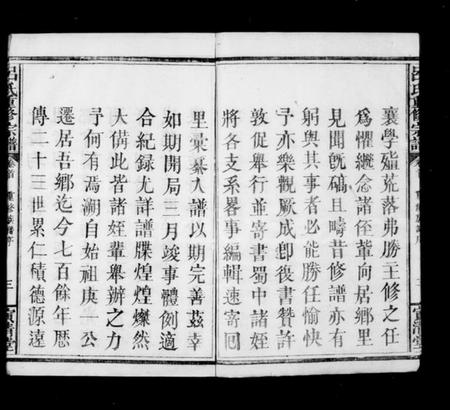 襄學殖荒落弗勝主修之任
爲懼繼念諸侄輩向居鄉里
見聞旣碻且疇昔修譜亦有
躬與其事者必能勝任愉快
予亦樂觀厥成卽復書贊許
敦促舉行並寄書蜀中諸侄
將各支系畧事編輯速寄回
里彙纂入譜以期完善茲幸
如期開局三月竣事體例適
合紀録尤詳譜牒煌煌燦然
大備此皆諸侄輩舉辦之力
予何有焉溯自始祖庚一公
遷居吾鄉迄今七百餘年歷
傳二十三世累仁積德源遠
呂氏重修宗譜
卷首
三